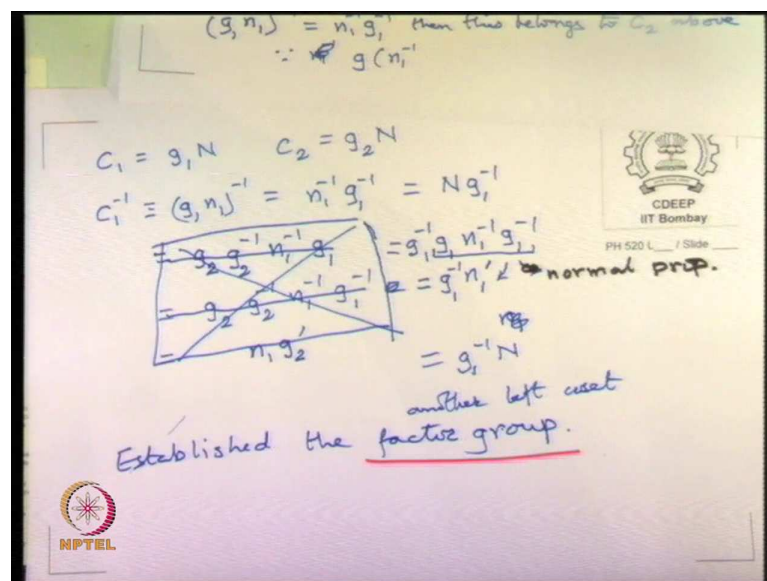 (g₁n₁)⁻¹ = n₁⁻¹ g₁⁻¹ then this belongs to C₂ above
∵ g(n₁⁻¹
C₁ = g₁N C₂ = g₂N
C₁⁻¹ ≡ (g₁n₁)⁻¹ = n₁⁻¹ g₁⁻¹ = N g₁⁻¹
= g₂ g₂⁻¹ n₁⁻¹ g₁ = g₁⁻¹ g₁ n₁⁻¹ g₁⁻¹
= g₂ g₂⁻¹ n₁⁻¹ g₁⁻¹ = g₁⁻¹ n₁' normal prop.
= n₁ g₂' = g₁⁻¹ N
another left coset
Established the factor group.
CDEEP
IIT Bombay
PH 520 L___ / Slide ___
NPTEL